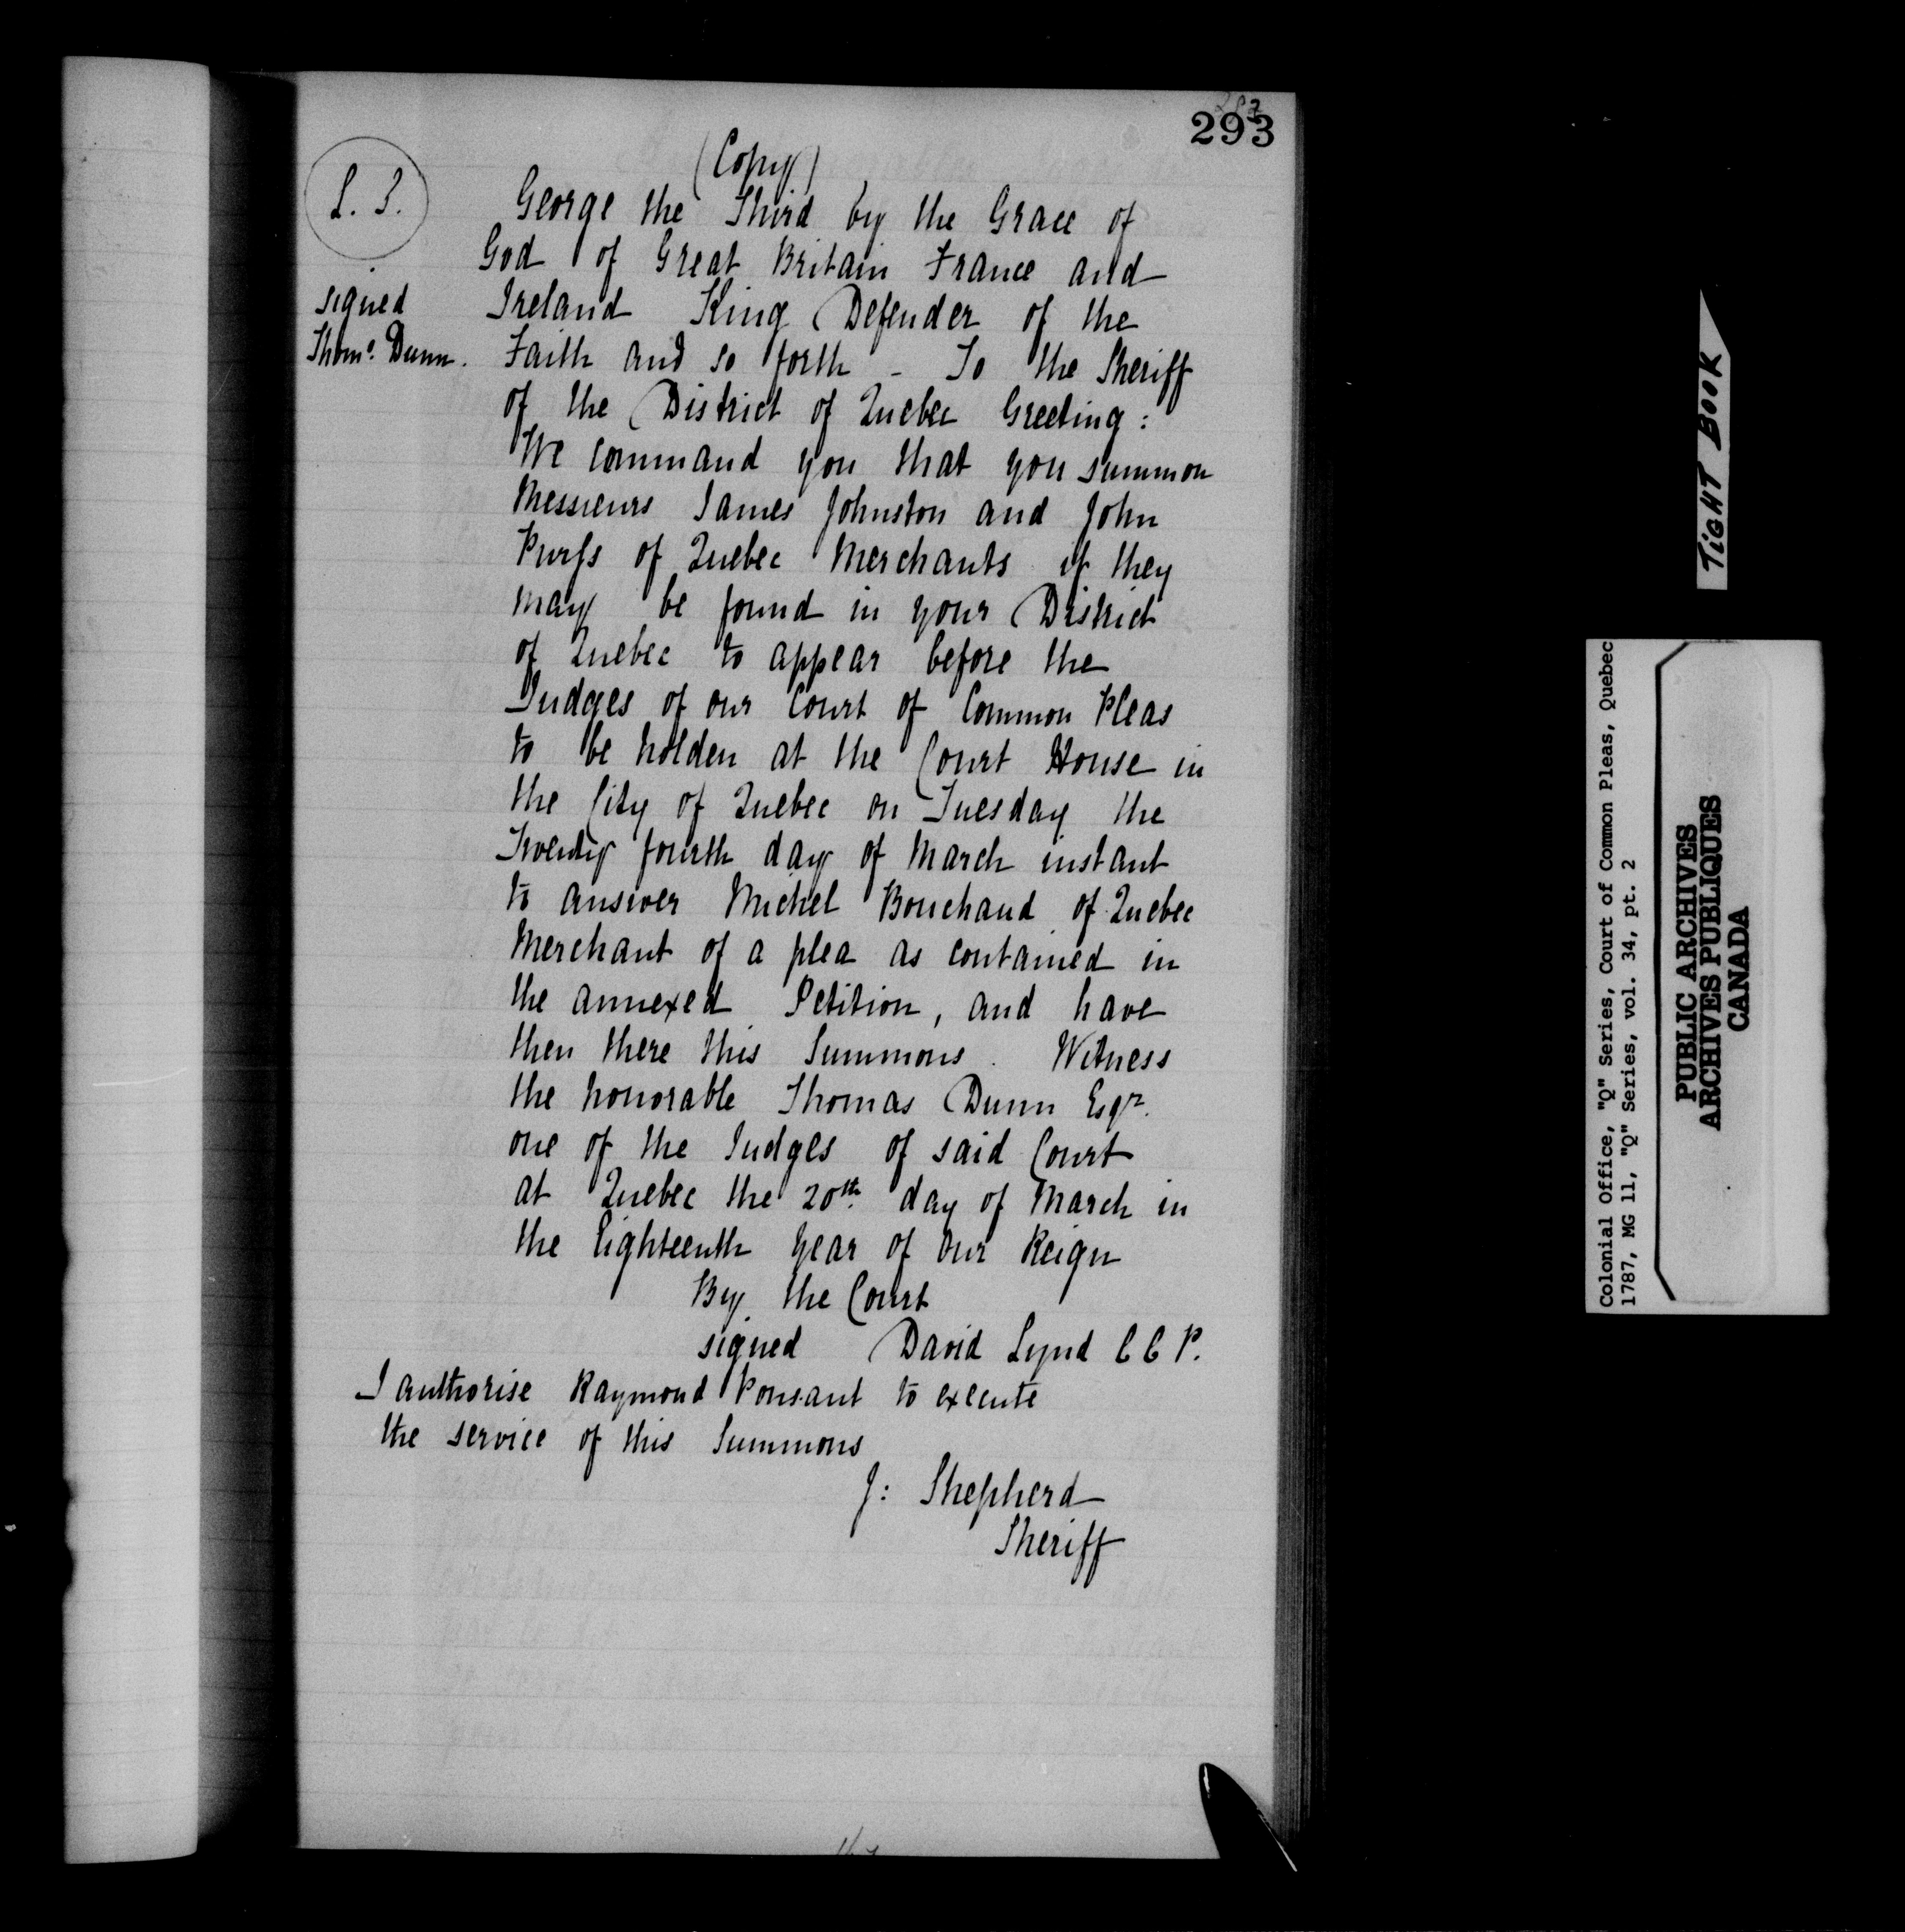 293
(Copy)
L. S.
signed
Thoms. Dunn.
George the Third by the Grace of
God of Great Britain France and
Ireland King Defender of the
Faith and so forth - To the Sheriff
of the District of Quebec Greeting:
We command you that you summon
Messieurs James Johnston and John
Purſs of Quebec Merchants if they
may be found in your District
of Quebec to appear before the
Judges of our Court of Common Pleas
to be holden at the Court House in
the City of Quebec on Tuesday the
Twenty fourth day of March instant
to answer Michel Bouchaud of Quebec
Merchant of a plea as contained in
the annexed Petition, and have
then there this Summons. Witness
the honorable Thomas Dunn Esqr.
one of the Judges of said Court
at Quebec the 20th day of March in
the Eighteenth Year of Our Reign
By the Court
signed David Lynd C C P.
I authorise Raymond Ponsant to execute
the service of this Summons
J: Shepherd
Sheriff
TIGHT BOOK
Colonial Office, "Q" Series, Court of Common Pleas, Quebec
1787, MG 11, "Q" Series, vol. 34, pt. 2
PUBLIC ARCHIVES
ARCHIVES PUBLIQUES
CANADA